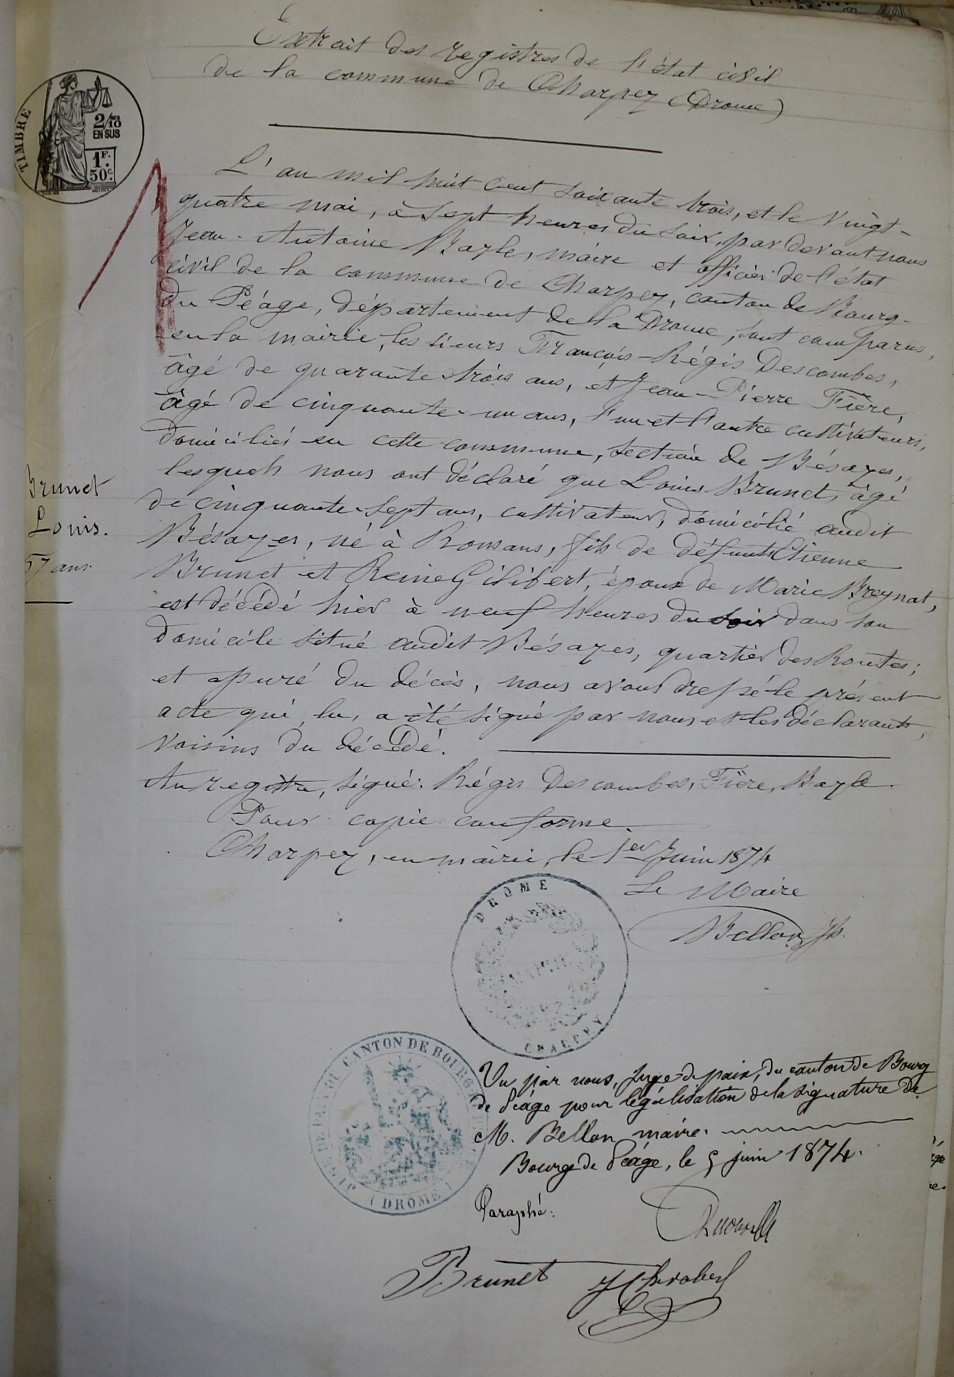 Extrait des registres de l'état civil
de la commune de Charpey (Drome)
TIMBRE
2/10
EN SUS
1F.
50c.
L'an mil huit cent soixante trois, et le vingt-
quatre mai, à sept heures du soir, par devant nous
Jean-Antoine Bayle, maire et officier de l'état
civil de la commune de Charpey, canton de Bourg-
du Péage, département de la Drome, sont comparus,
en la mairie, les sieurs François-Régis Descombes,
âgé de quarante trois ans, et Jean-Pierre Fière,
âgé de cinquante-un ans, l'un et l'autre cultivateurs,
domiciliés en cette commune, section de Bésayes,
lesquels nous ont déclaré que Louis Brunet, âgé
de cinquante-sept ans, cultivateur, domicilié audit
Bésayes, né à Romans, fils de défunts Etienne
Brunet et Reine Gilibert, époux de Marie Breynat,
est décédé hier à neuf heures du soir dans son
domicile situé audit Bésayes, quartier des Routes;
et assuré du décès, nous avons dressé le présent
acte qui, lu, a été signé par nous et les déclarants,
voisins du décédé.
Brunet
Louis.
57 ans
Au registre, signé: Régis Descombes, Fière, Bayle.
Pour copie conforme.
Charpey, en mairie, le 1er Juin 1874
Le Maire
Bellon
DROME
MAIRIE
CHARPEY
CANTON DE BOURG
(DROME)
Vu par nous, Juge de paix, du canton de Bourg
de Péage pour légalisation de la signature de
M. Bellon, maire.
Bourg de Péage, le 5 juin 1874.
Paraphé:
Brunet